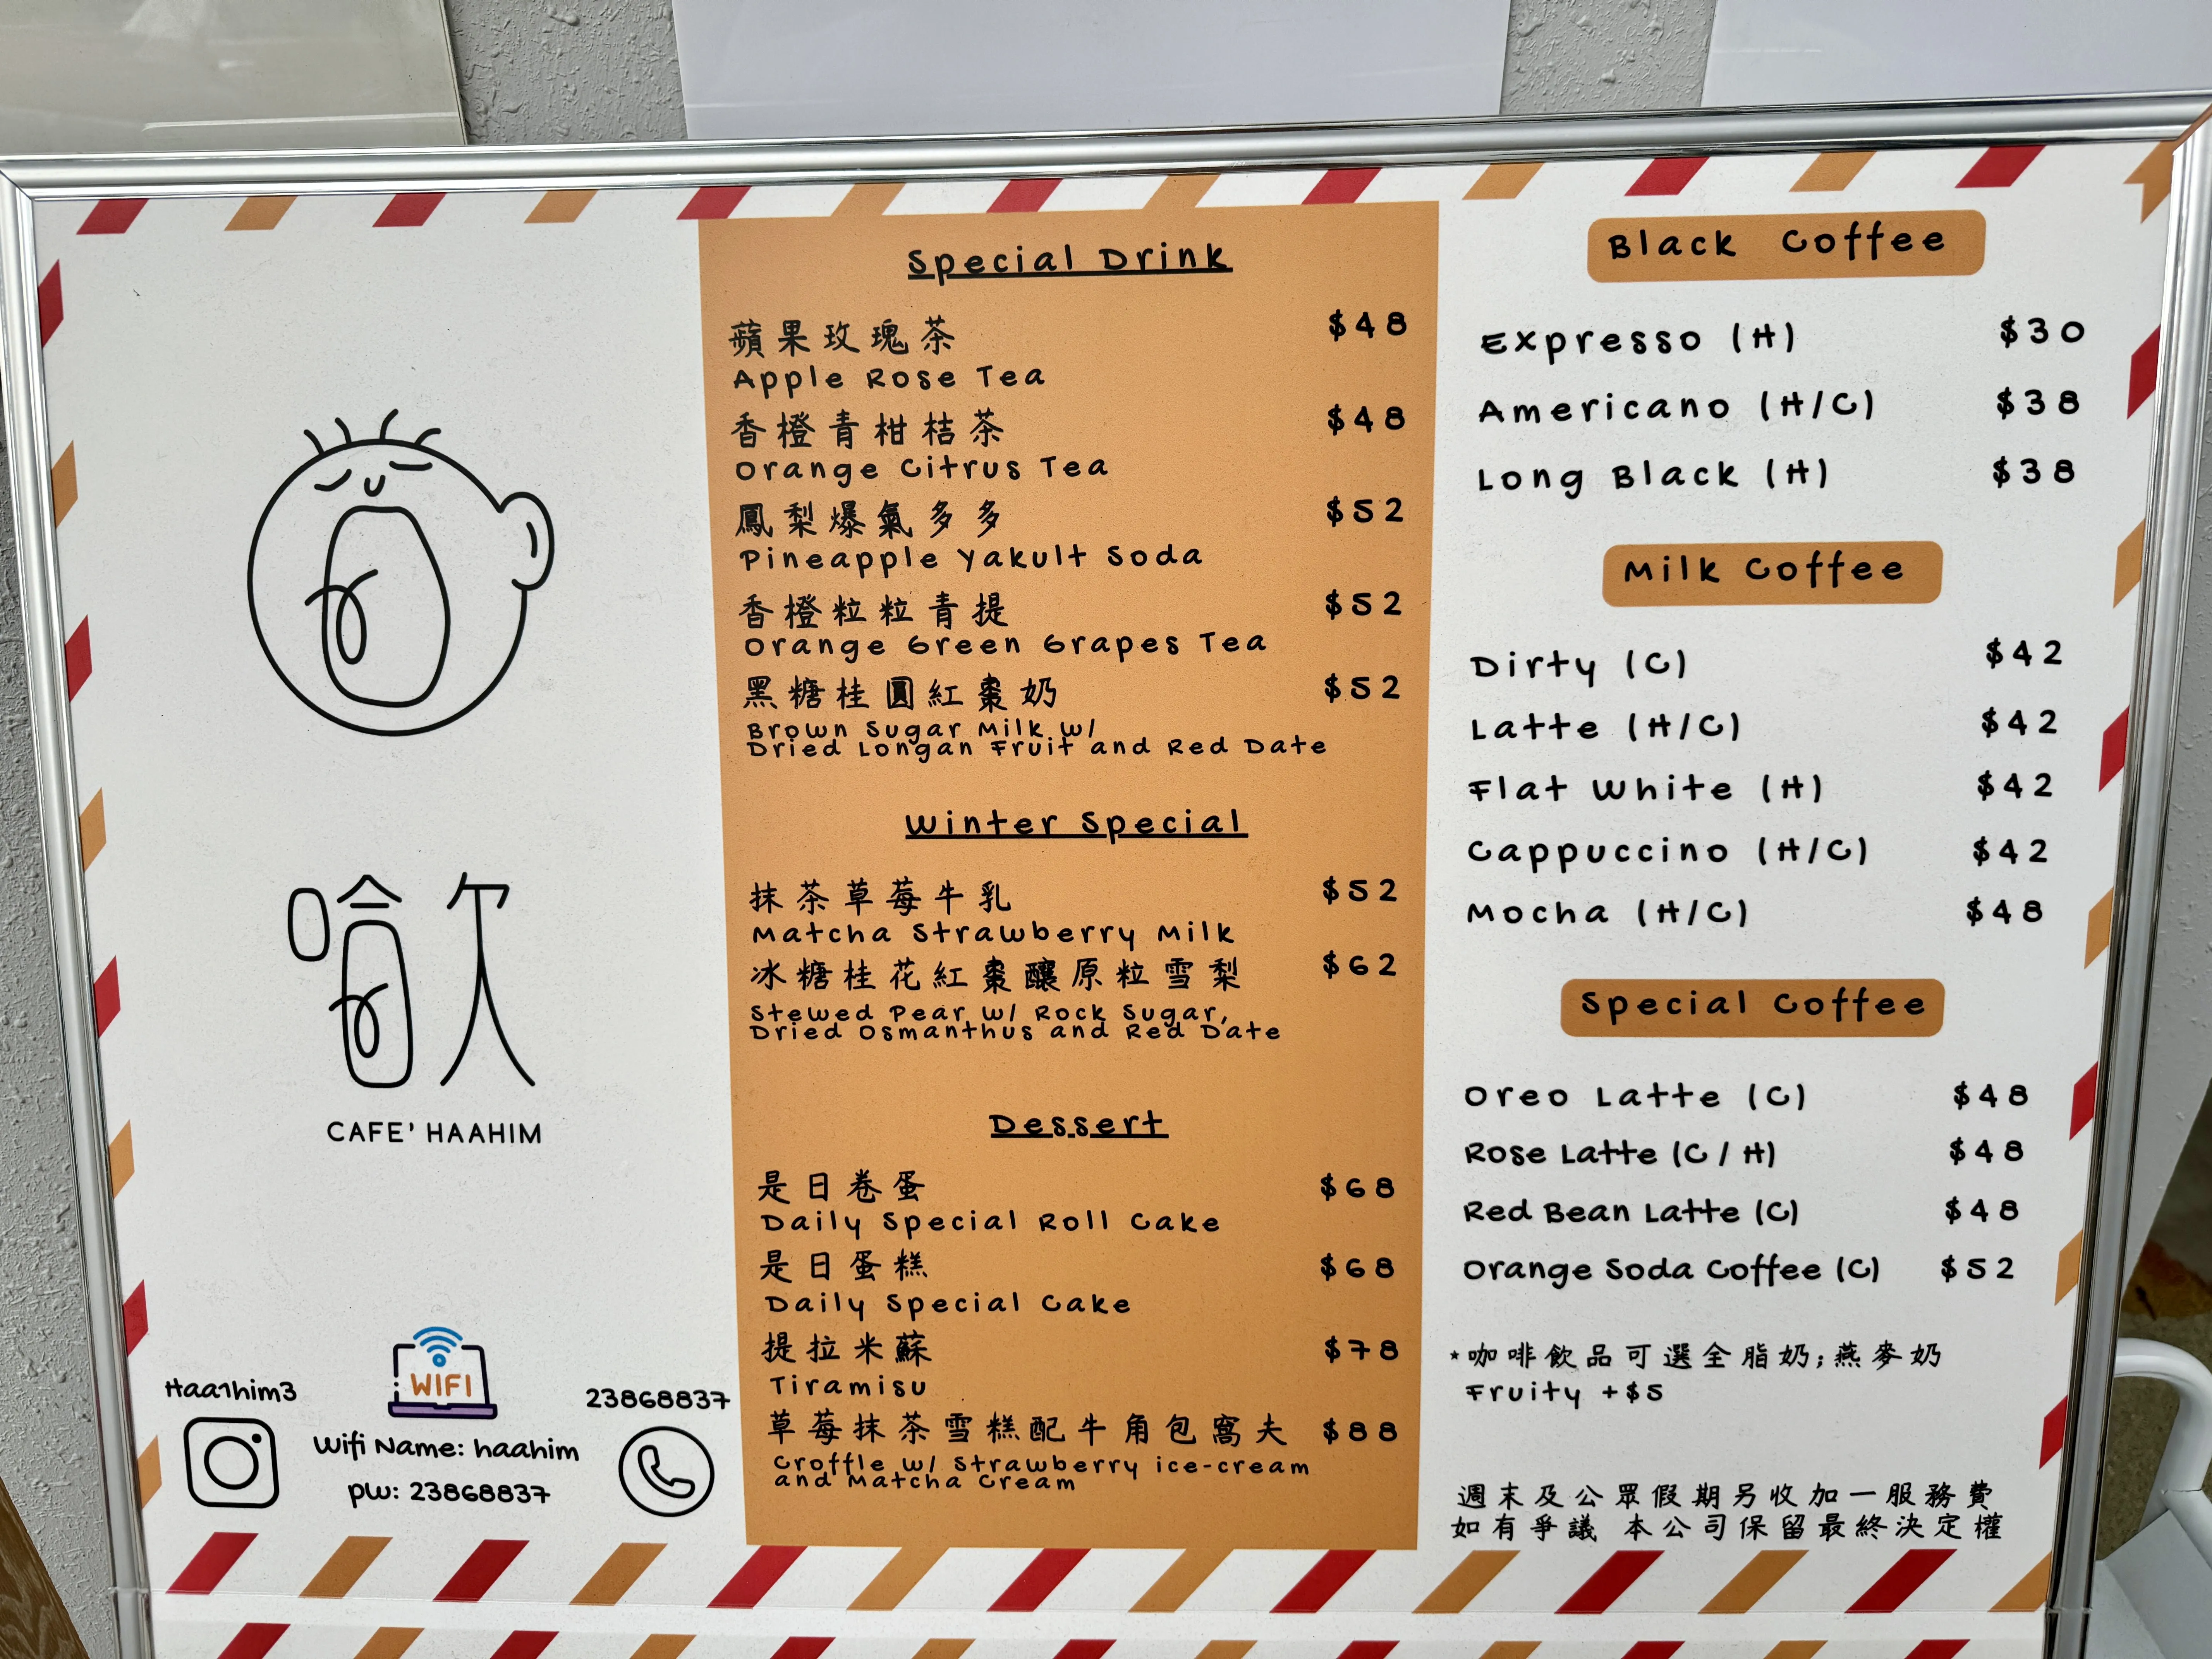 哈欠
CAFE' HAAHIM
Haa1him3
WIFI
Wifi Name: haahim
pw: 23868837
23868837
Special Drink
蘋果玫瑰茶 $48
Apple Rose Tea
香橙青柑桔茶 $48
Orange Citrus Tea
鳳梨爆氣多多 $52
Pineapple Yakult Soda
香橙粒粒青提 $52
Orange Green Grapes Tea
黑糖桂圓紅棗奶 $52
Brown Sugar Milk w/
Dried Longan Fruit and Red Date
Winter Special
抹茶草莓牛乳 $52
Matcha Strawberry Milk
冰糖桂花紅棗釀原粒雪梨 $62
Stewed Pear w/ Rock Sugar,
Dried Osmanthus and Red Date
Dessert
是日卷蛋 $68
Daily Special Roll Cake
是日蛋糕 $68
Daily Special Cake
提拉米蘇 $78
Tiramisu
草莓抹茶雪糕配牛角包窩夫 $88
Croffle w/ Strawberry ice-cream
and Matcha Cream
Black Coffee
Expresso (H) $30
Americano (H/C) $38
Long Black (H) $38
Milk Coffee
Dirty (C) $42
Latte (H/C) $42
Flat White (H) $42
Cappuccino (H/C) $42
Mocha (H/C) $48
Special Coffee
Oreo Latte (C) $48
Rose Latte (C / H) $48
Red Bean Latte (C) $48
Orange Soda Coffee (C) $52
*咖啡飲品可選全脂奶;燕麥奶
Fruity +$5
週末及公眾假期另收加一服務費
如有爭議 本公司保留最終決定權